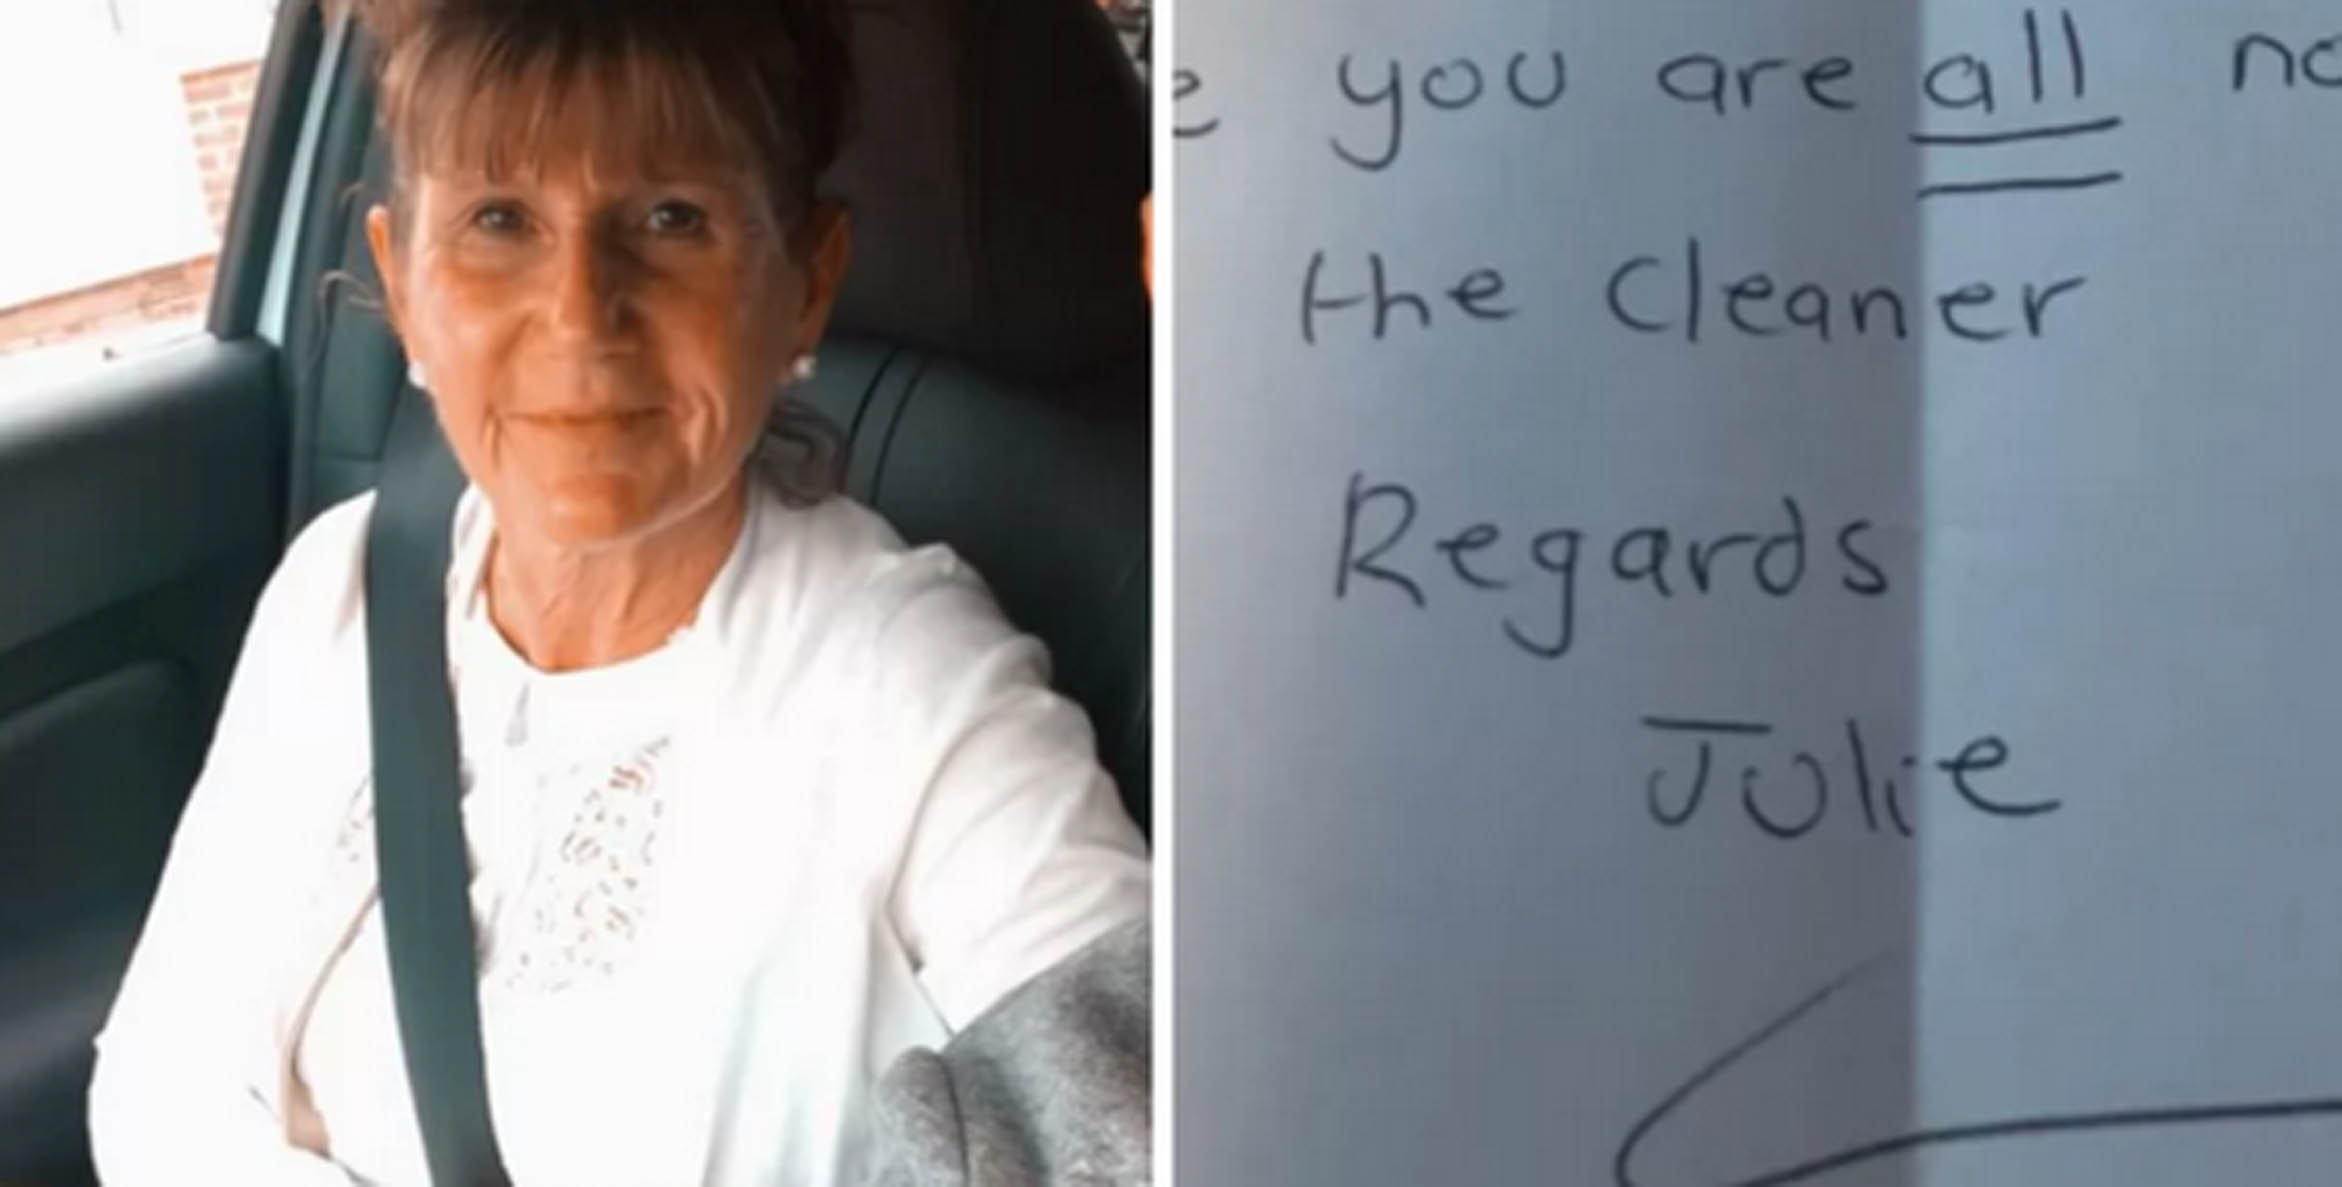 you are all
the cleaner
Regards
Julie